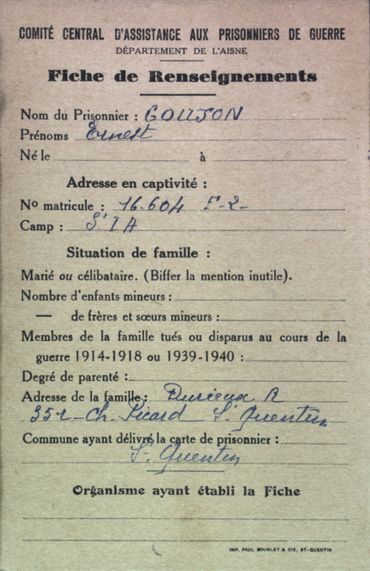 COMITÉ CENTRAL D'ASSISTANCE AUX PRISONNIERS DE GUERRE
DÉPARTEMENT DE L'AISNE
Fiche de Renseignements
Nom du Prisonnier : GOUJON
Prénoms Ernest
Né le à
Adresse en captivité :
No matricule : 16.604 F-2-
Camp : S' I A
Situation de famille :
Marié ou célibataire. (Biffer la mention inutile).
Nombre d'enfants mineurs :
— de frères et sœurs mineurs :
Membres de la famille tués ou disparus au cours de la
guerre 1914-1918 ou 1939-1940 :
Degré de parenté :
Adresse de la famille : Durieux R
Ch. Picard St Quentin
Commune ayant délivré la carte de prisonnier :
St Quentin
Organisme ayant établi la Fiche
IMP. PAUL BOURLET & CIE, ST-QUENTIN